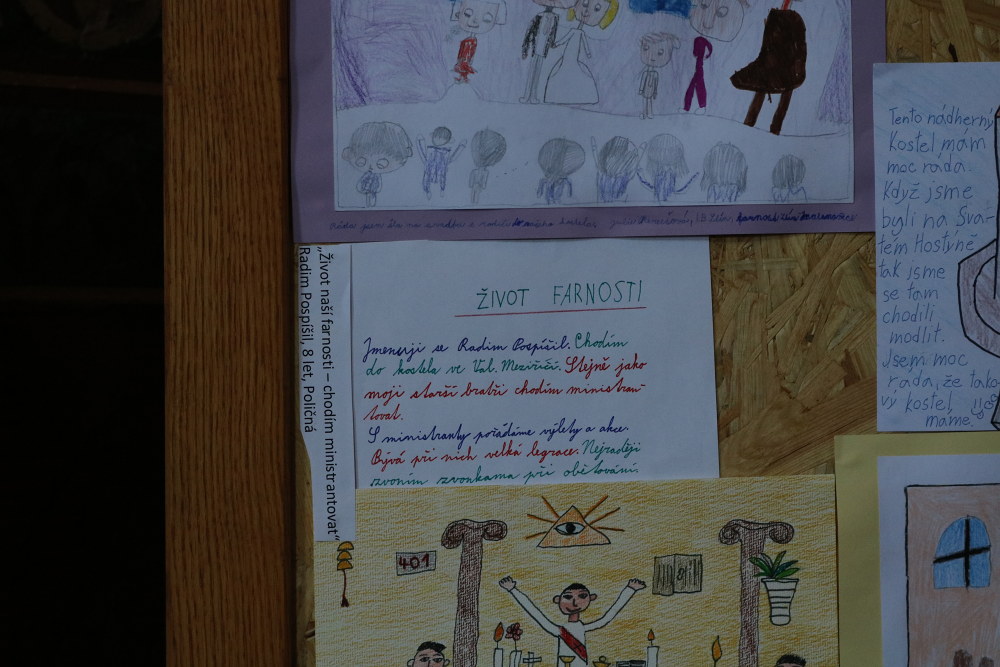 „Život naší farnosti – chodím ministrantovat"
Radim Pospíšil, 8 let, Poličná
ŽIVOT FARNOSTI
Jmenerji se Radim Pospíšil. Chodím
do kostela ve Val. Meziříčí. Stejně jako
moji starší bratři chodím ministran-
tovat.
S ministranty pořádáme výlety a akce.
Bývá při nich velká legrace. Nejraději
zvoním zvonkama při obětování.
401
Tento nádherný
Kostel mám
moc ráda.
Když jsme
byli na Svá-
tém Hostýně
tak jsme
se tam
chodili
modlit.
Jsem moc
ráda, že tako-
vý kostel
máme.